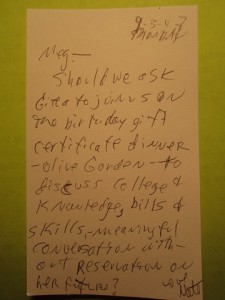 Meg—
Should we ask
Greta to join us on
the birthday gift
certificate dinner
-Olive Garden-to
discuss college &
knowledge, bills &
skills,-meaningful
conversation with-
out reservation on
her future?